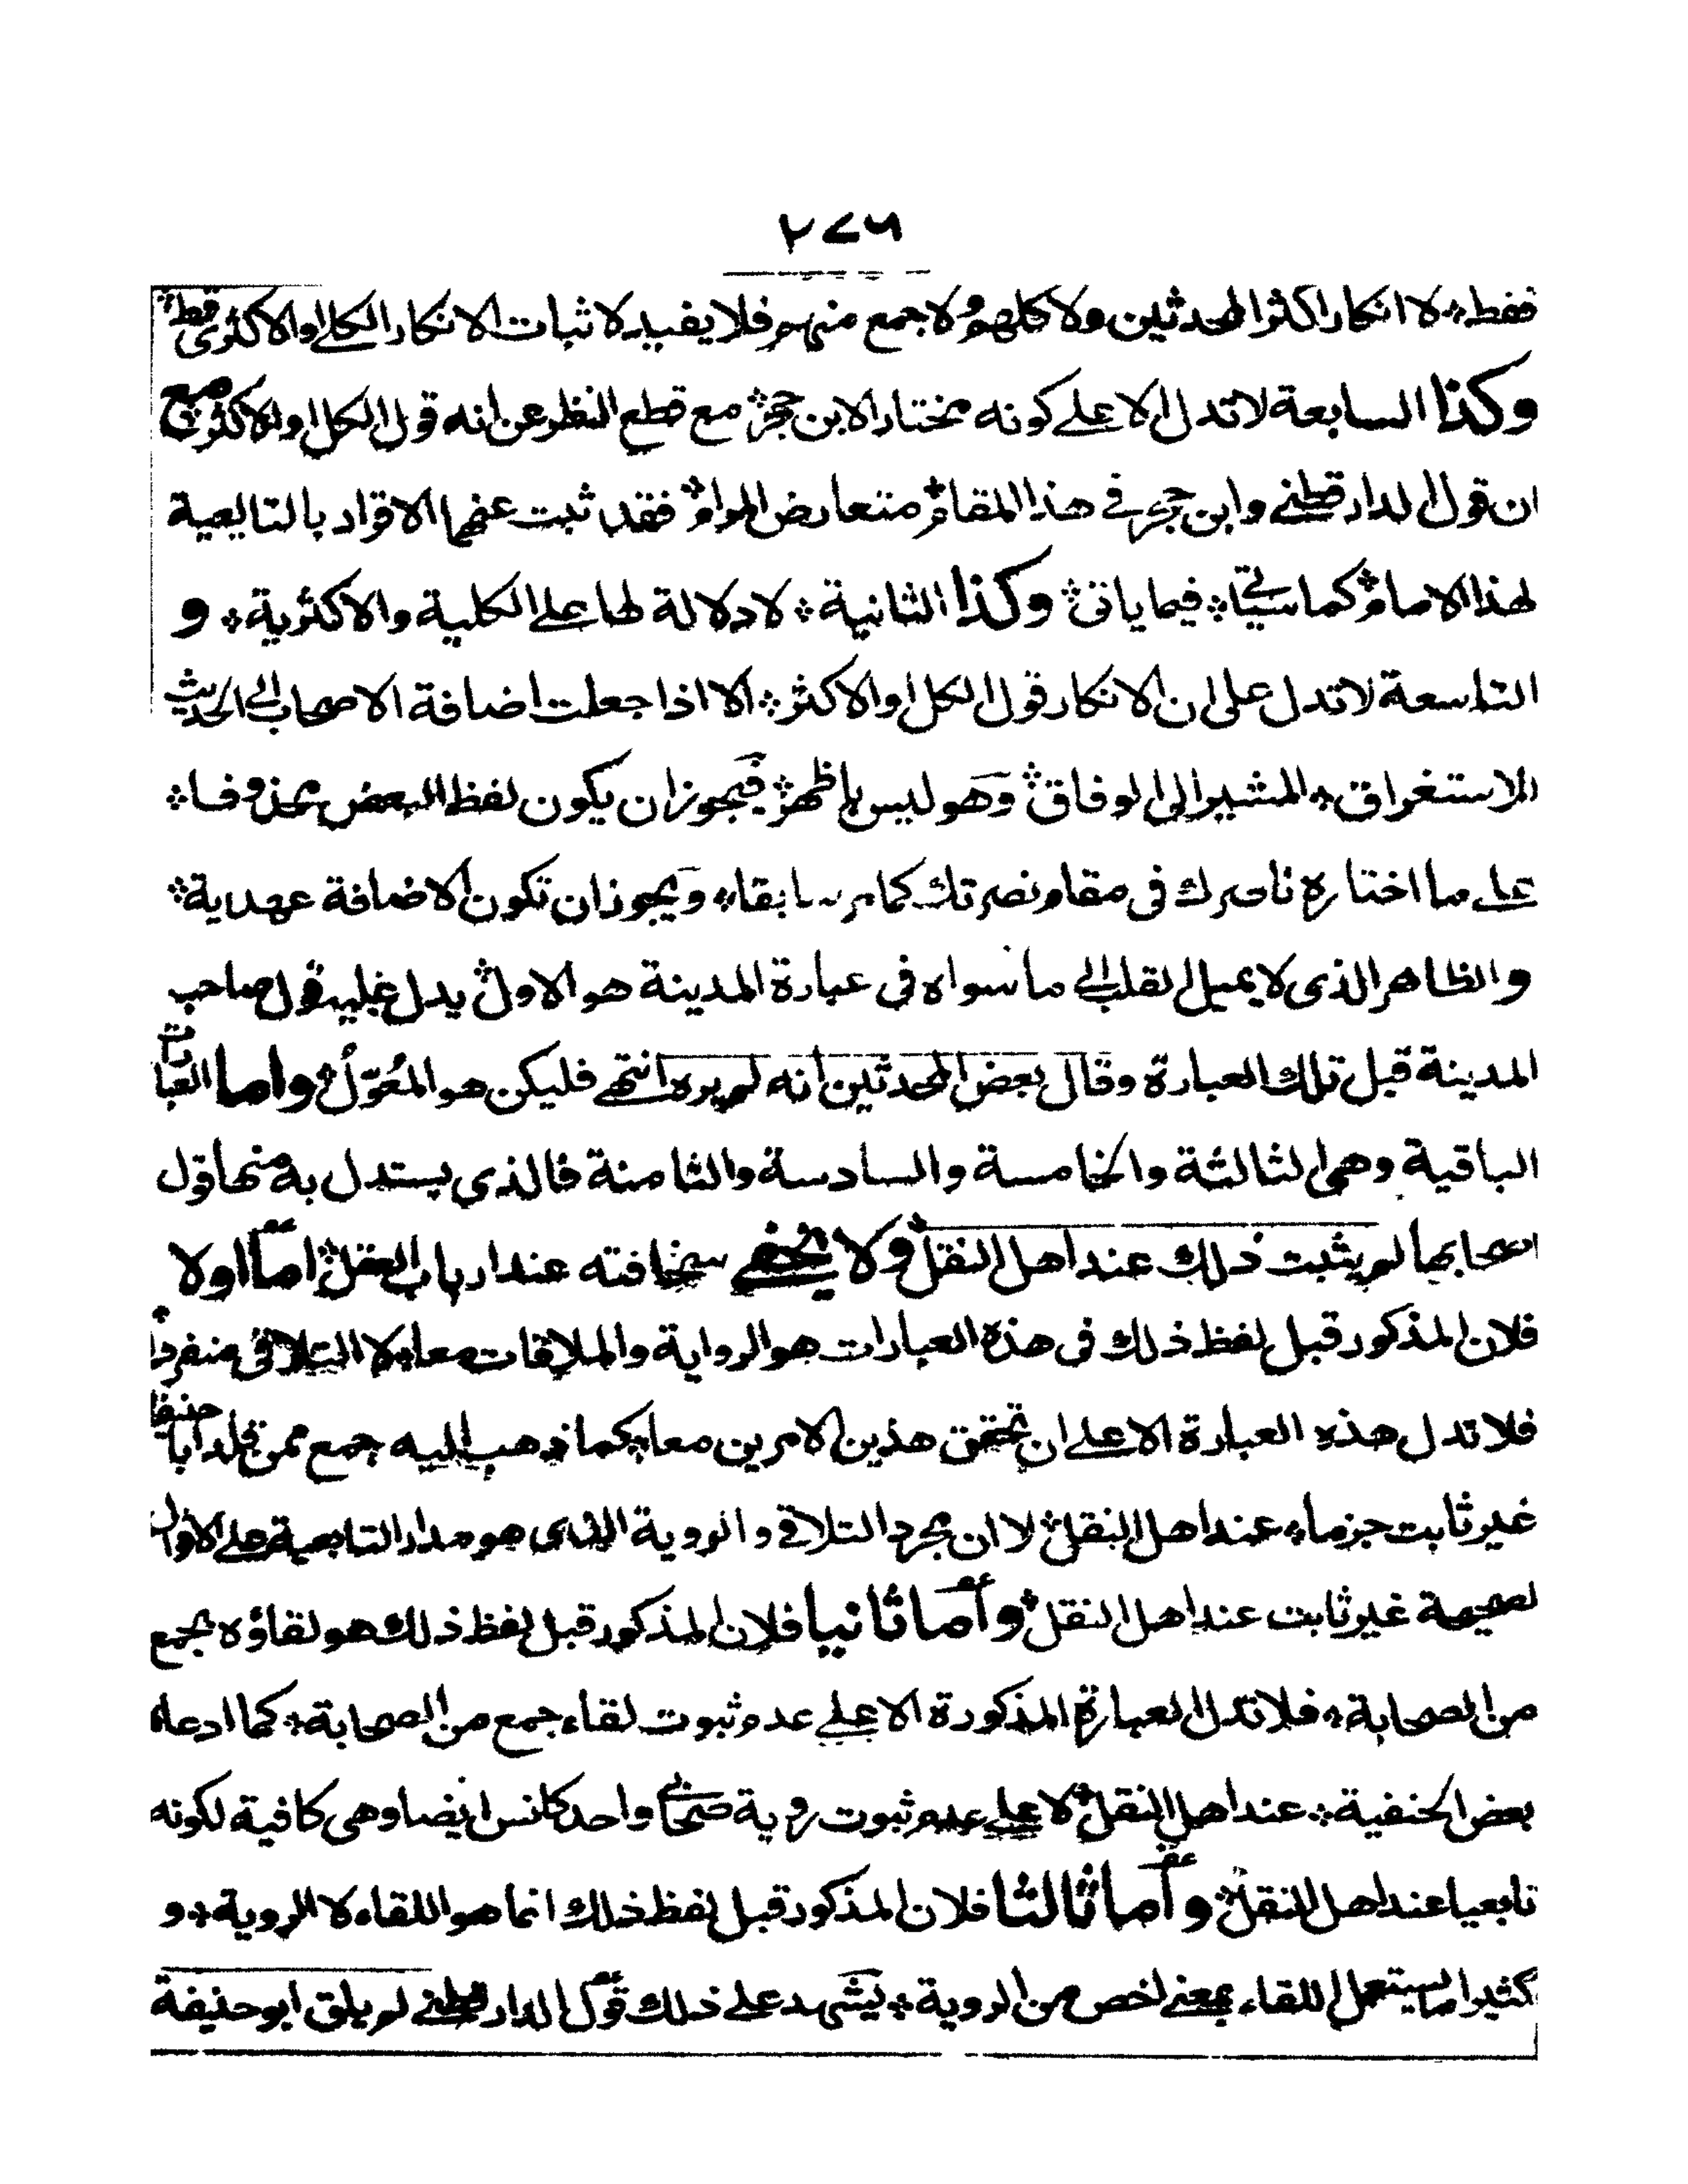 ٢٧٦
فقط لا انكار اكثر المحدثين ولا كلهم ولا جمع منهم فلا يفيد لاثبات الانكار الكلي او الاكثري قط
وكذا السابعة لا تدل الا على كونه مختارا لابن حجر مع قطع النظر عن انه قول الكل او الاكثر مع
ان قول الدارقطني وابن حجر في هذا المقام متعارض المرام فقد ثبت عنهما الاقرار بالتابعية
لهذا الامام كما سياتي فيما ياتي وكذا الثانية لا دلالة لها على الكلية والاكثرية و
التاسعة لا تدل على ان الانكار قول الكل او الاكثر الا اذا جعلت اضافة الاصحاب الى الحديث
للاستغراق المشير الى الوفاق وهو ليس باظهر فيجوز ان يكون لفظ البعض محذوفا
على ما اختاره ناصرك في مقام نصرتك كما مر سابقا ويجوز ان تكون الاضافة عهدية
والظاهر الذي لا يميل القلب الى ما سواه في عبارة المدينة هو الاول يدل عليه قول صاحب
المدينة قبل تلك العبارة وقال بعض المحدثين انه لم يره انتهى فليكن هو المعول واما العبارات
الباقية وهي الثالثة والخامسة والسادسة والثامنة فالذي يستدل به منها قول
اصحابها لم يثبت ذلك عند اهل النقل ولا يخفى سخافته عند ارباب العقل اما اولا
فلان المذكور قبل لفظ ذلك في هذه العبارات هو الرواية والملاقات معا لا التلاقي منفردا
فلا تدل هذه العبارة الا على ان تحقق هذين الامرين معا كما ذهب اليه جمع ممن قلد ابا حنيفة
غير ثابت جزما عند اهل النقل لا ان مجرد التلاقي والروية الذي هو مدار التابعية على الاقوال
لصحيحة غير ثابت عند اهل النقل واما ثانيا فلان المذكور قبل لفظ ذلك هو لقاؤه بجمع
من الصحابة فلا تدل العبارة المذكورة الا على عدم ثبوت لقاء جمع من الصحابة كما ادعاه
بعض الحنفية عند اهل النقل لا على عدم ثبوت روية صحابي واحد كانس ايضا وهي كافية لكونه
تابعيا عند اهل النقل واما ثالثا فلان المذكور قبل لفظ ذلك انما هو اللقاء لا الروية و
كثيرا ما يستعمل اللقاء بمعنى اخص من الروية يشهد على ذلك قول الدارقطني لم يلق ابو حنيفة